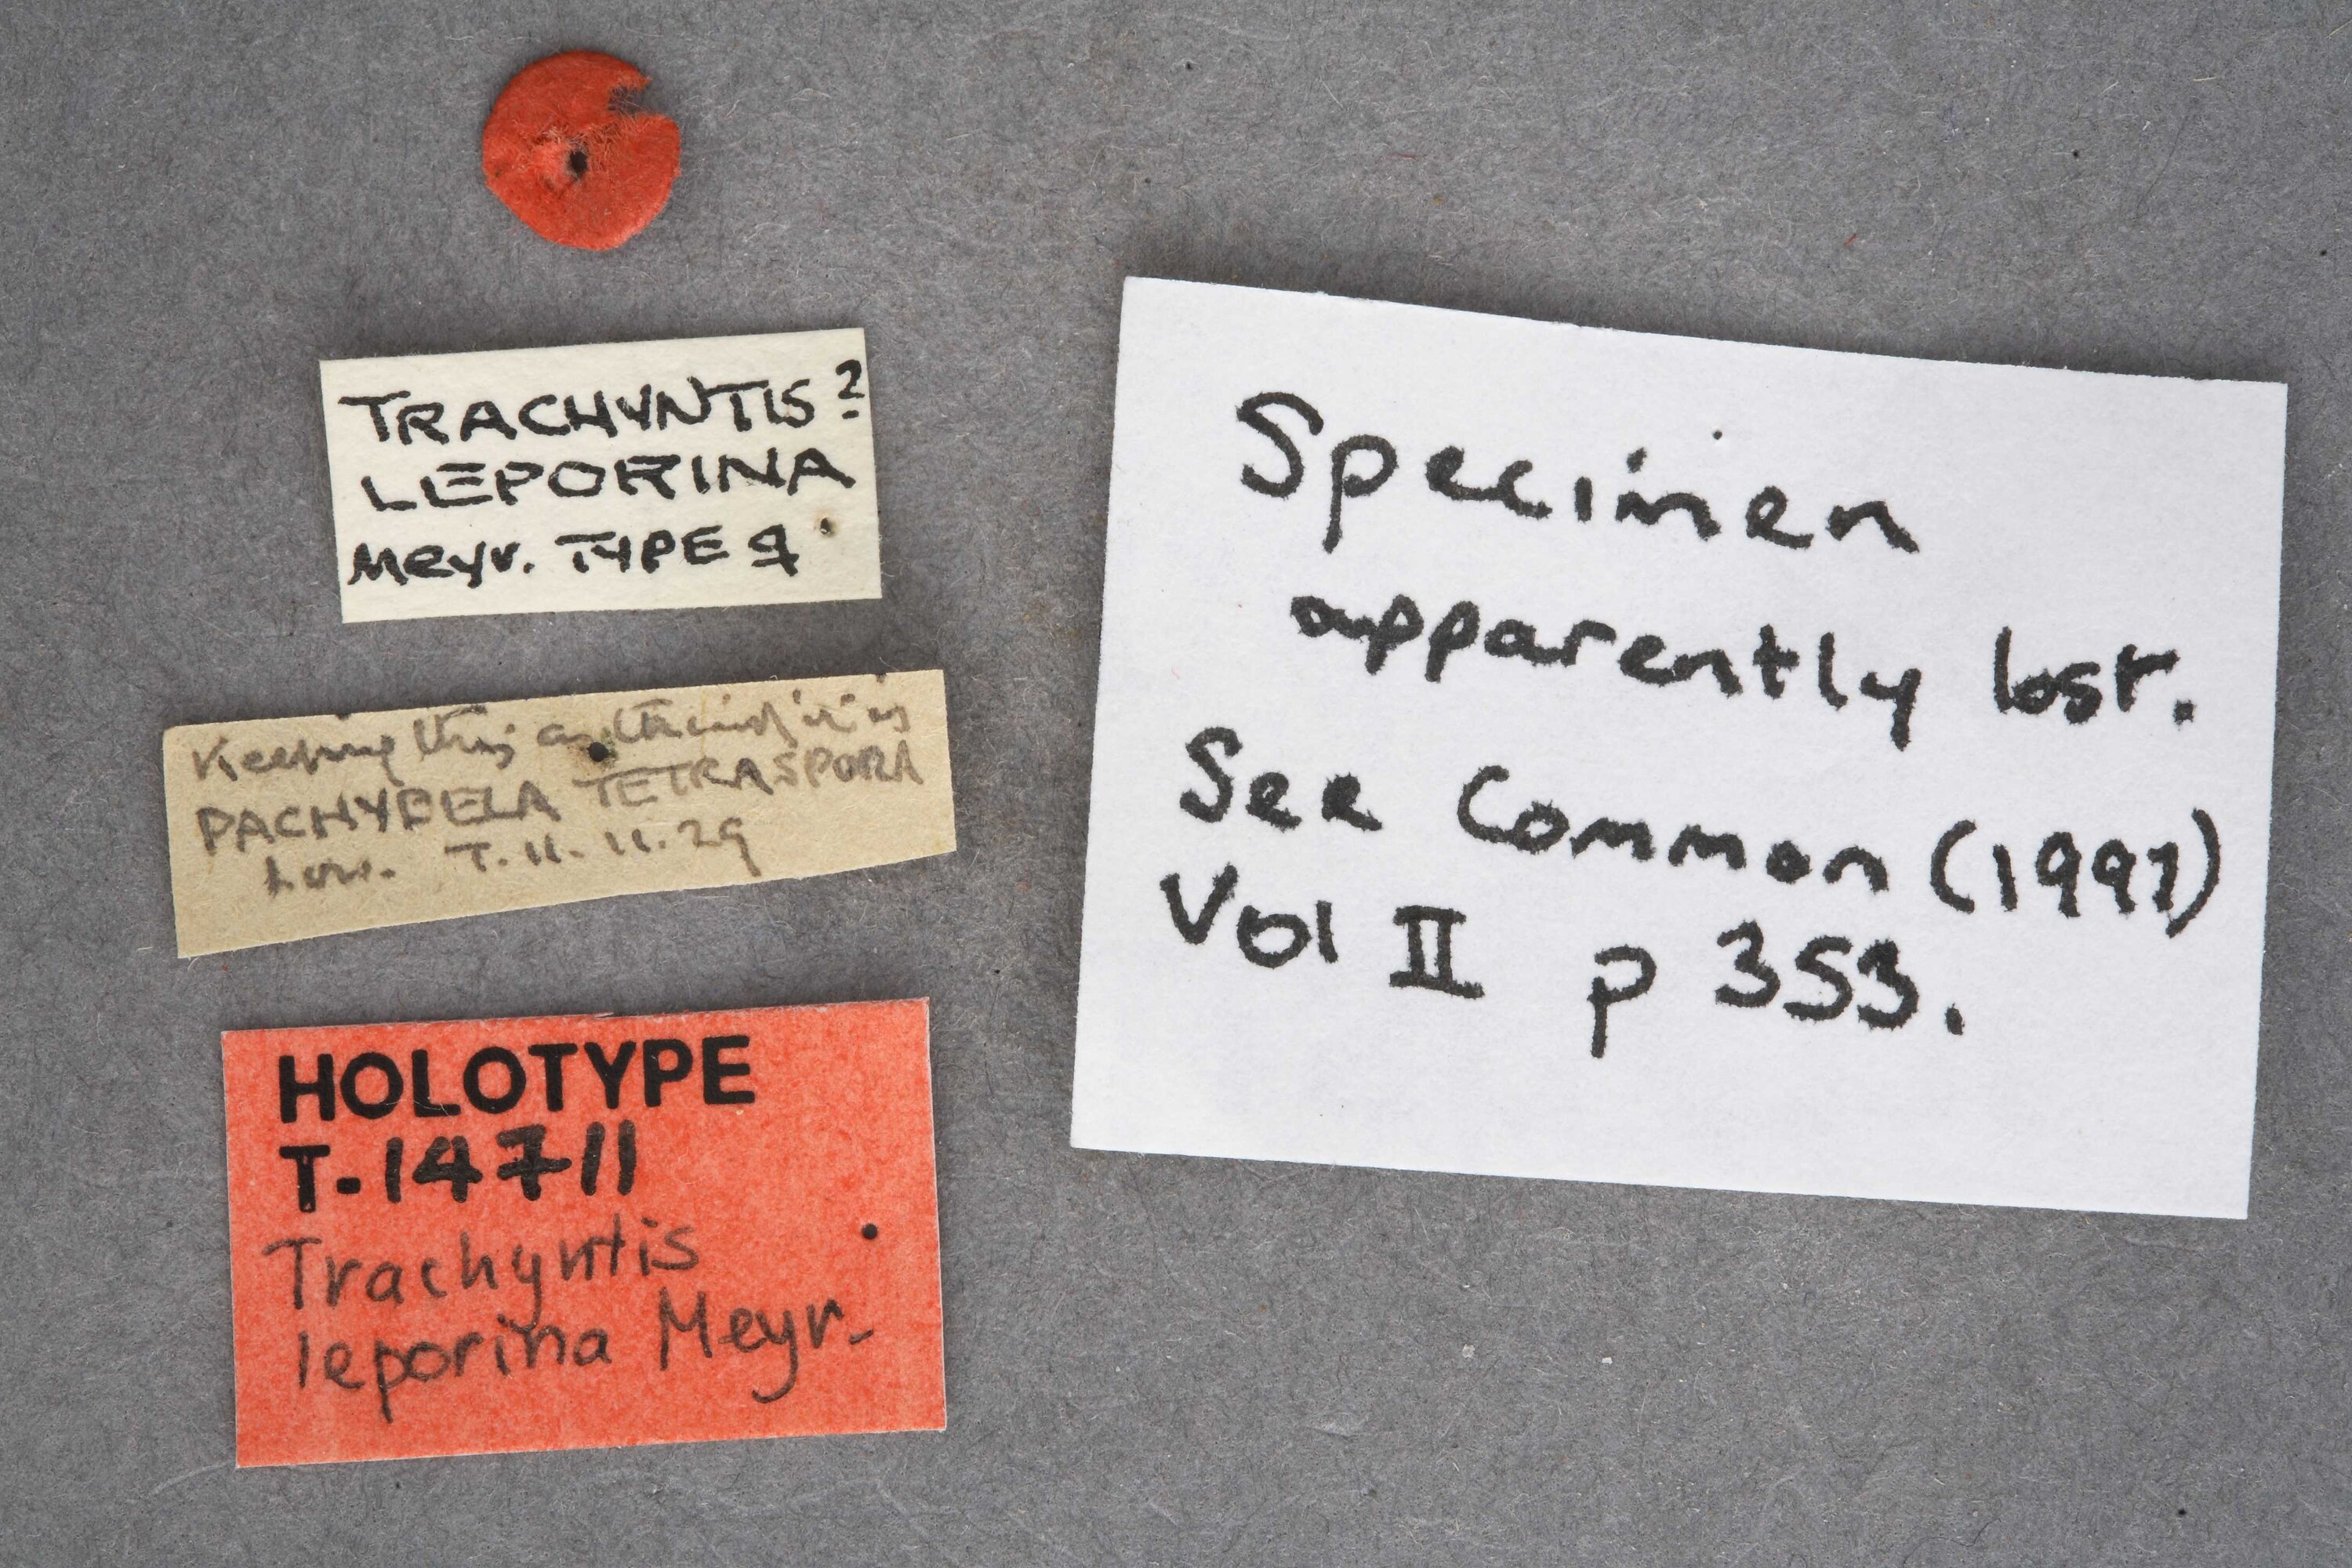 TRACHYNTIS?
LEPORINA
Meyr. TYPE ♀
Keeping this as
PACHYBELA TETRASPORA
Low. T. 11.11.29
HOLOTYPE
T-14711
Trachyntis
leporina Meyr.
Specimen
apparently lost.
See Common (1997)
Vol II p 353.